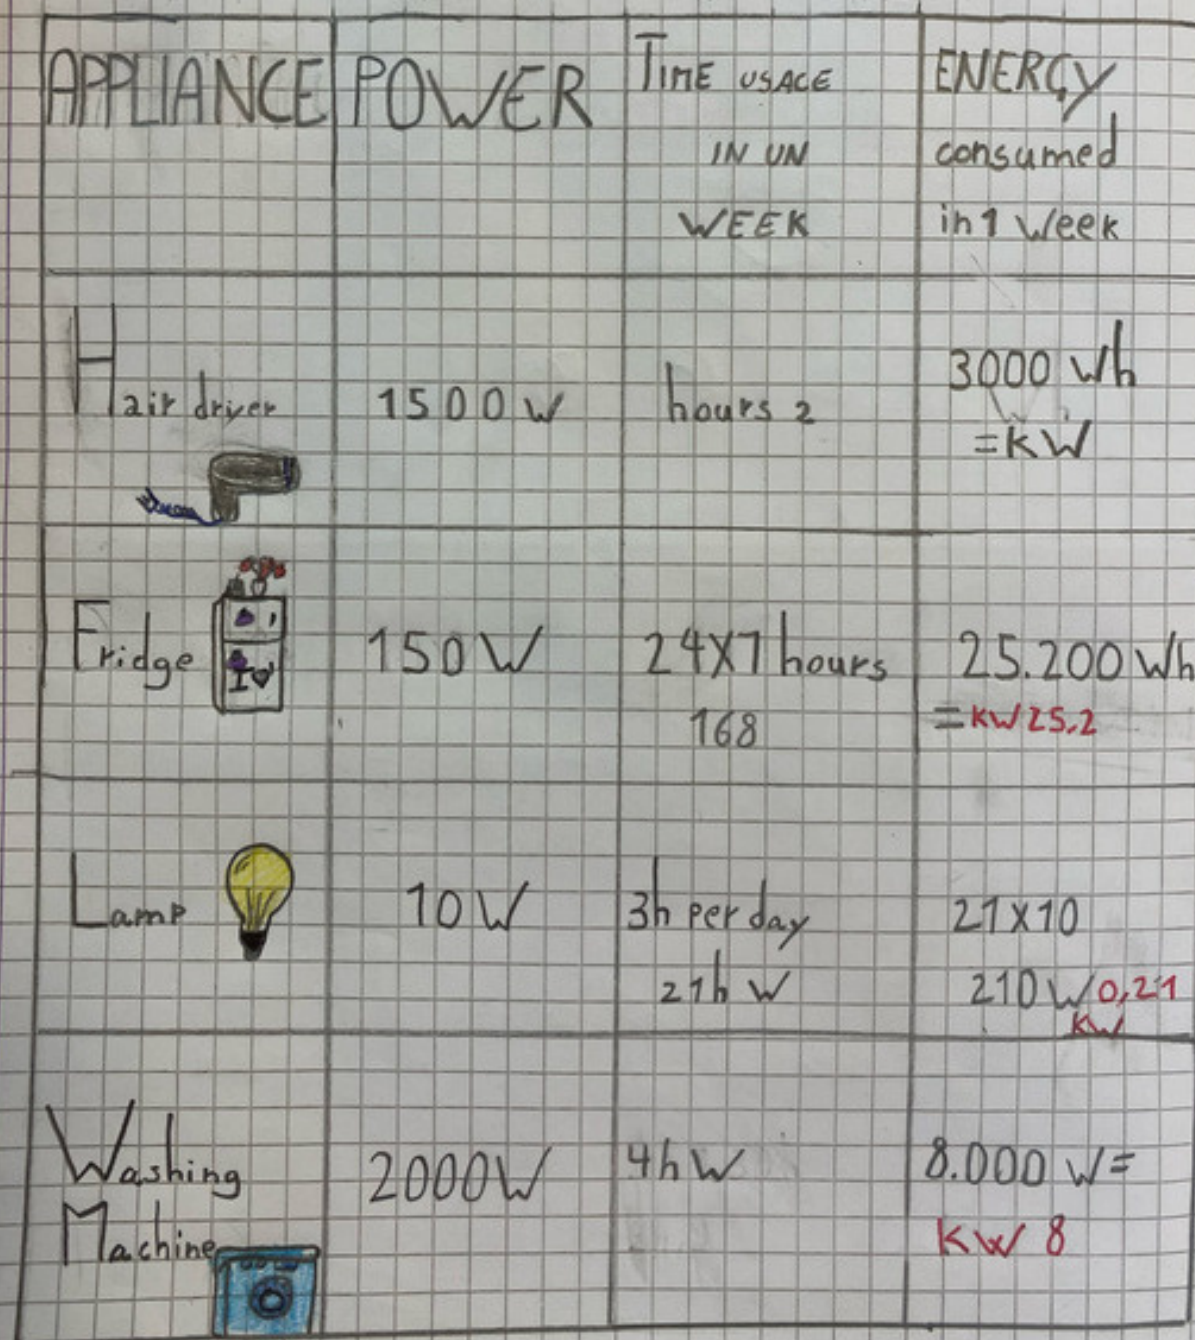 APPLIANCE
POWER
TIME USAGE
IN UN
WEEK
ENERGY
consumed
in 1 Week
Hair dryer
1500 W
hours 2
3000 Wh
= KW
Fridge
I ♥
150 W
24X7 hours
168
25.200 Wh
= KW 25,2
Lamp
10 W
3h per day
21h W
21 x 10
210 W 0,21
KW
Washing
Machine
2000W
4h W
8.000 W =
KW 8